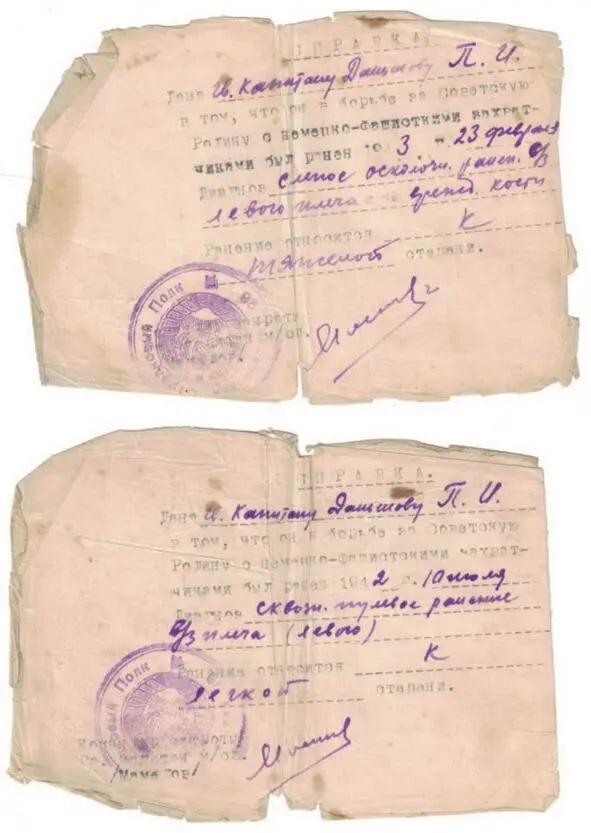 СПРАВКА.
Дана гв. Капитану Дашшову П. И.
в том, что он в борьбе за Советскую
Родину с немецко-фашисткими захват-
чиками был ранен 194 3 г. 23 февраля
Диагноз слепое осколочн. ранен. в/3
левого плеча с кости
Ранение относится к
тяжелой степени.
Полк
СПРАВКА.
Дана гв. Капитану Дашшову П. И.
в том, что он в борьбе за Советскую
Родину с немецко-фашистскими захват-
чиками был ранен 1942 г. 10 июля
Диагноз сквозн. пулевое ранение
в/3 плеча (левого)
Ранение относится к
легкой степени.
Полк
/Маметов/